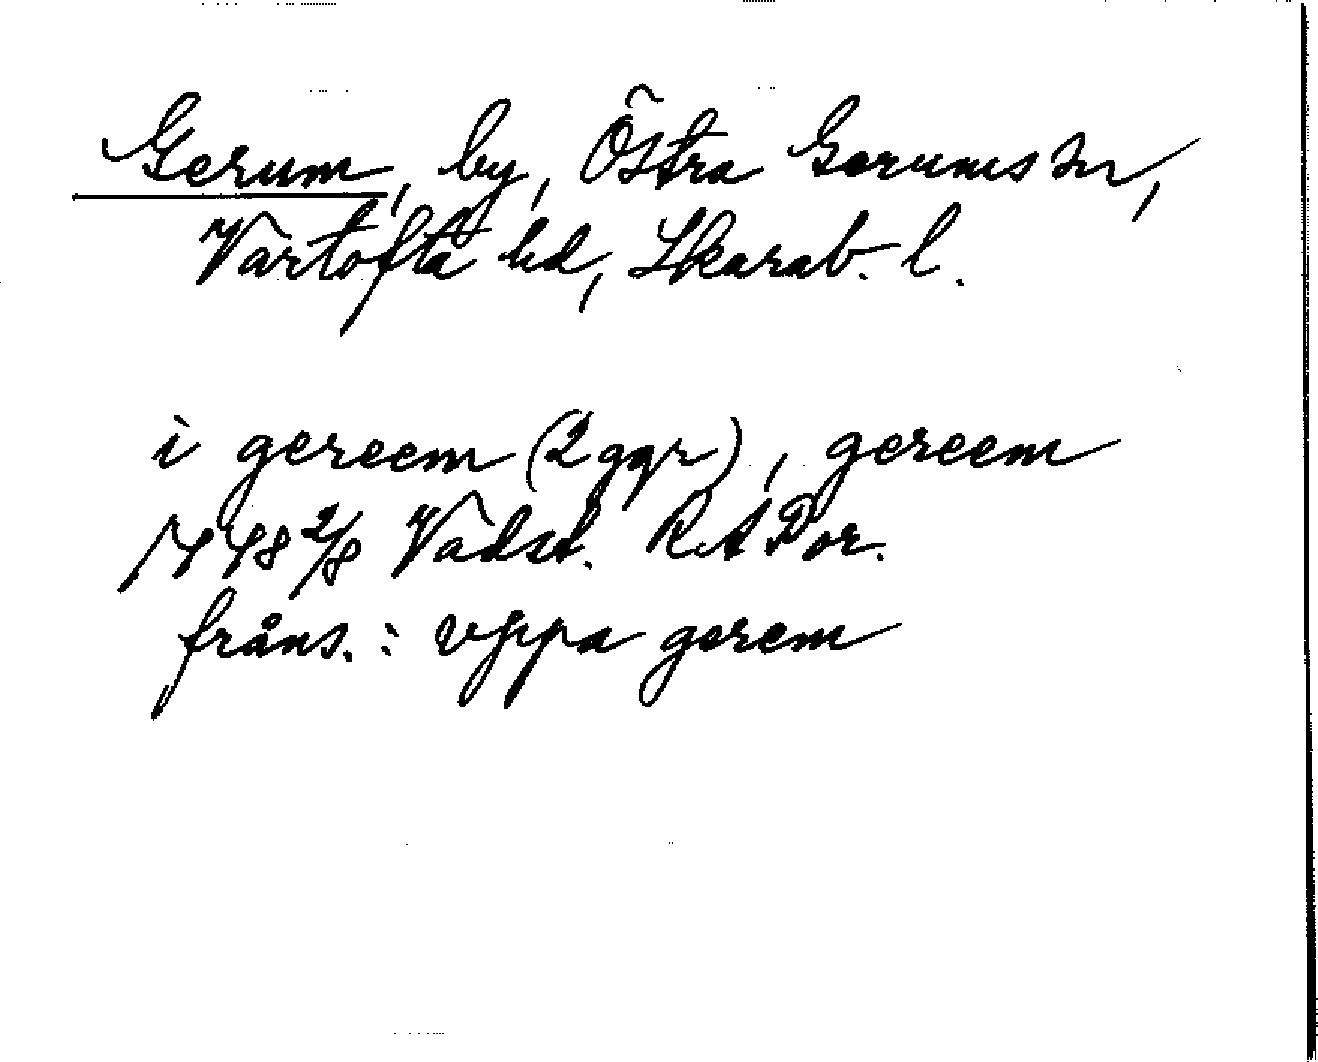 Gerum, by, Östra Gerums sn,
Vartofta hd, Skarab. l.
i gereem (2 ggr), gereem
1448 2/8 Vadst. RAPor.
fråns.: vppa gerem